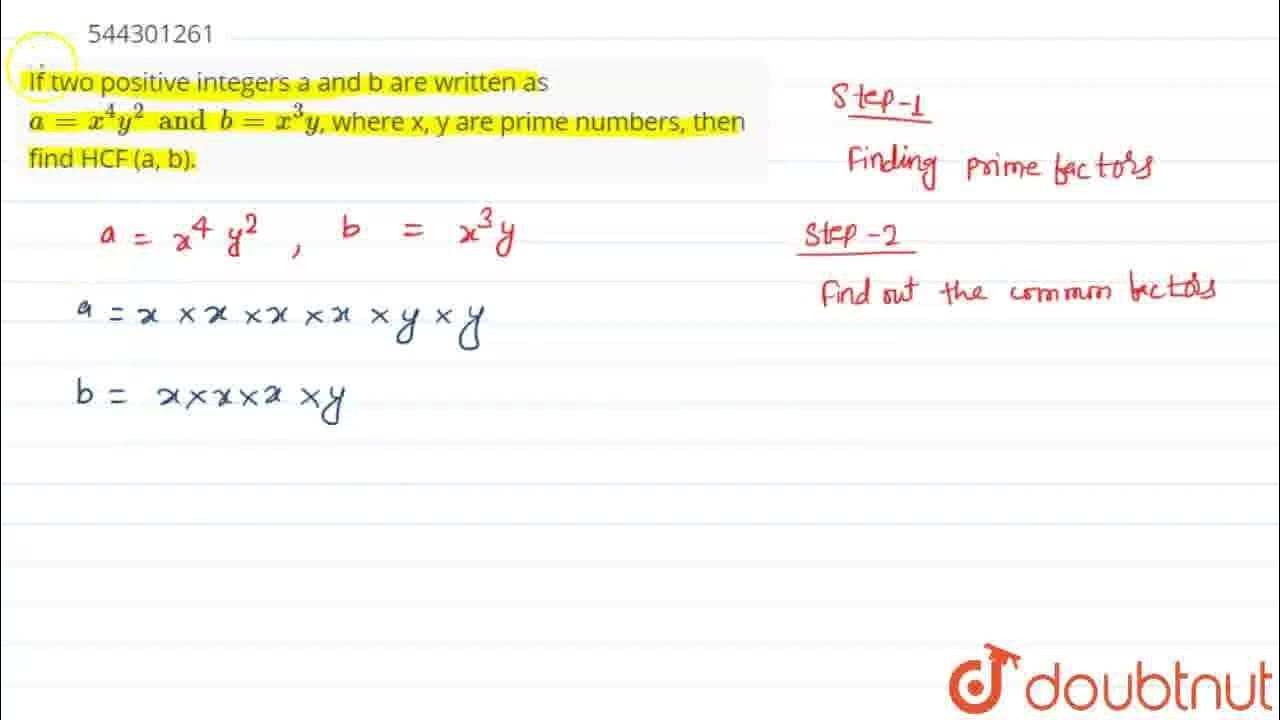 544301261
If two positive integers a and b are written as
a = x⁴y² and b = x³y, where x, y are prime numbers, then
find HCF (a, b).
a = x⁴ y² , b = x³y
a = x × x × x × x × y × y
b = x × x × x × y
Step-1
Finding prime factors
Step-2
Find out the common factors
doubtnut